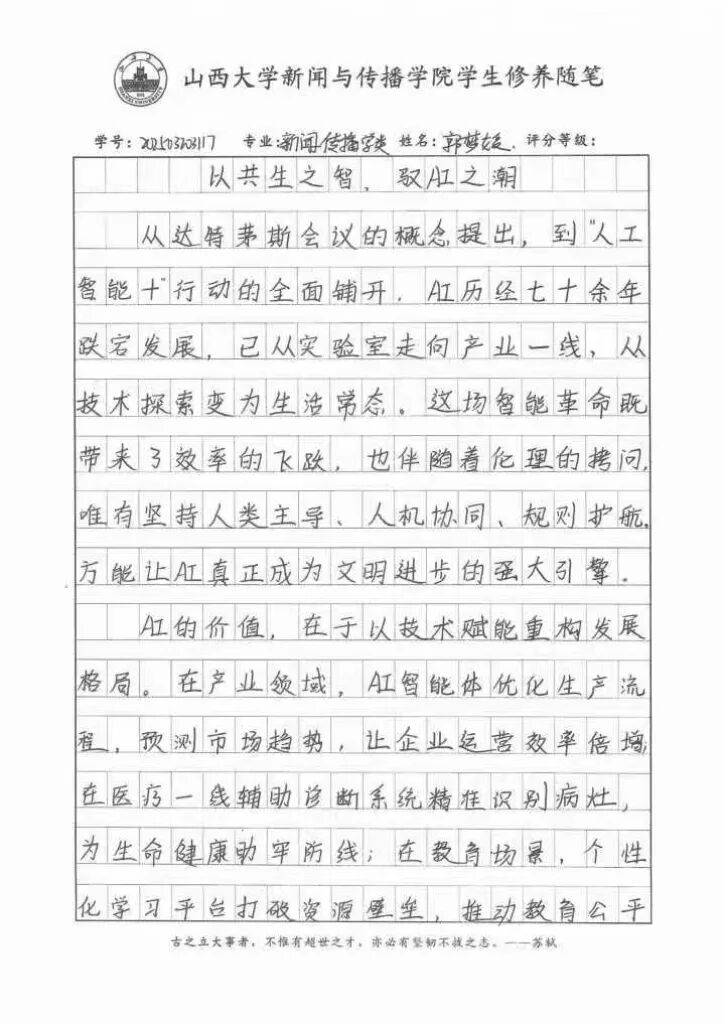 山西大学新闻与传播学院学生修养随笔
学号: 专业:新闻传播学类 姓名: 评分等级:
以共生之智，驭AI之潮
从达特茅斯会议的概念提出，到"人工
智能十"行动的全面铺开．AI历经七十余年
跌宕发展，已从实验室走向产业一线、从
技术探索变为生活常态。这场智能革命既
带来了效率的飞跃，也伴随着伦理的拷问，
唯有坚持人类主导、人机协同、规则护航，
方能让AI真正成为文明进步的强大引擎。
AI的价值，在于以技术赋能重构发展
格局。在产业领域，AI智能体优化生产流
程，预测市场趋势，让企业运营效率倍增；
在医疗一线辅助诊断系统精准识别病灶，
为生命健康助牢防线；在教育场景，个性
化学习平台打破资源壁垒，推动教育公平
古之立大事者，不惟有超世之才，亦必有坚韧不拔之志。——苏轼